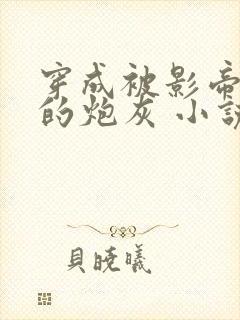 穿成被影帝
的炮灰 小說
貝曉曦